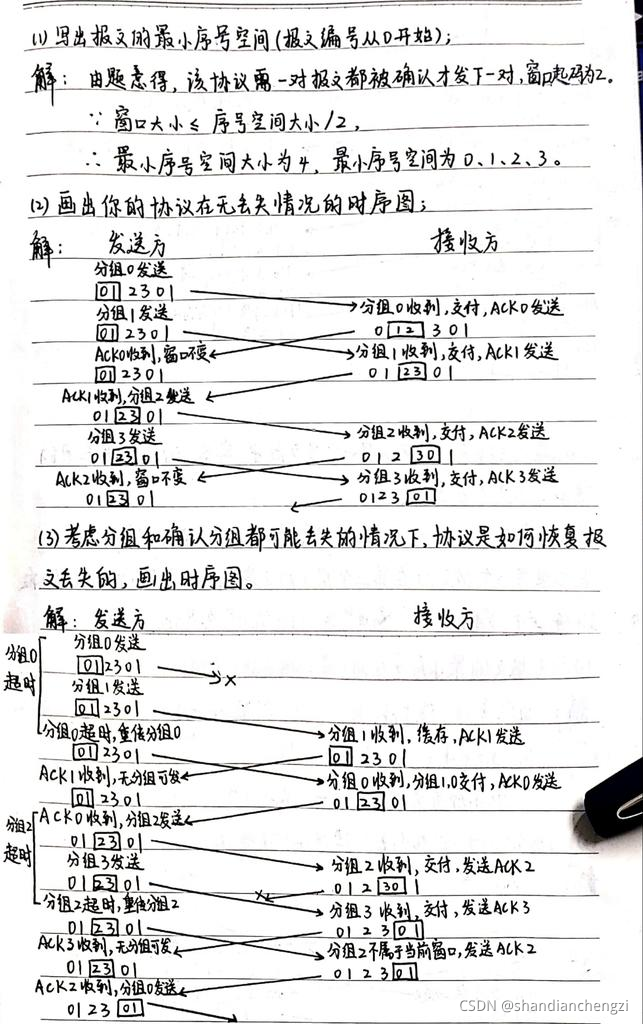 (1) 写出报文的最小序号空间(报文编号从0开始);
解: 由题意得,该协议需一对报文都被确认才发下一对,窗口起码为2。
∵ 窗口大小 ≤ 序号空间大小/2,
∴ 最小序号空间大小为4,最小序号空间为0、1、2、3。
(2) 画出你的协议在无丢失情况的时序图;
解: 发送方 接收方
分组0发送
01 2301
分组0收到,交付,ACK0发送
分组1发送
0 12 301
01 2301
ACK0收到,窗口不变
分组1收到,交付,ACK1发送
01 2301
01 23 01
ACK1收到,分组2发送
01 23 01
分组3发送
分组2收到,交付,ACK2发送
01 23 01
012 30 1
ACK2收到,窗口不变
分组3收到,交付,ACK3发送
01 23 01
0123 01
(3) 考虑分组和确认分组都可能丢失的情况下,协议是如何恢复报
文丢失的,画出时序图。
解: 发送方 接收方
分组0超时
分组0发送
01 2301
x
分组1发送
01 2301
分组0超时,重传分组0
分组1收到,缓存,ACK1发送
01 2301
01 2301
ACK1收到,无分组可发
分组0收到,分组1,0交付,ACK0发送
01 2301
01 23 01
分组2超时
ACK0收到,分组2发送
01 23 01
分组3发送
分组2收到,交付,发送ACK2
01 23 01
012 30 1
x
分组2超时,重传分组2
分组3收到,交付,发送ACK3
01 23 01
0123 01
ACK3收到,无分组可发
分组2不属于当前窗口,发送ACK2
01 23 01
0123 01
ACK2收到,分组0发送
0123 01
CSDN @shandianchengzi